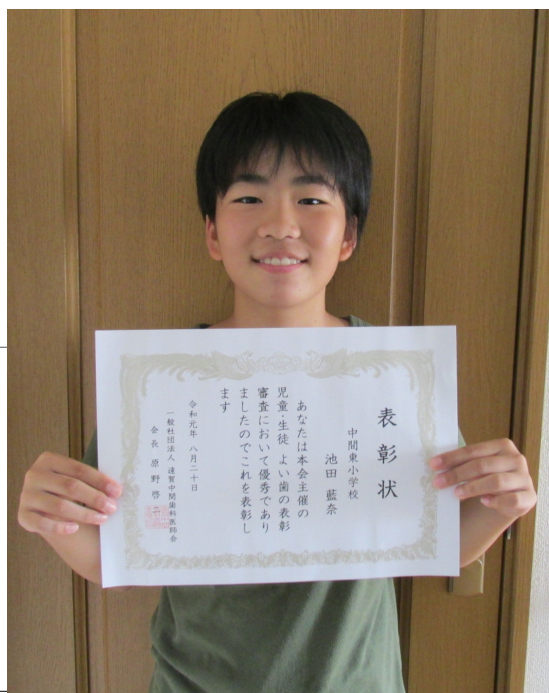 表彰状
中間東小学校
池田 藍奈
あなたは本会主催の
児童・生徒 よい歯の表彰
審査において優秀であり
ましたのでこれを表彰し
ます
令和元年 八月二十日
一般社団法人 遠賀中間歯科医師会
会長 原野 啓二